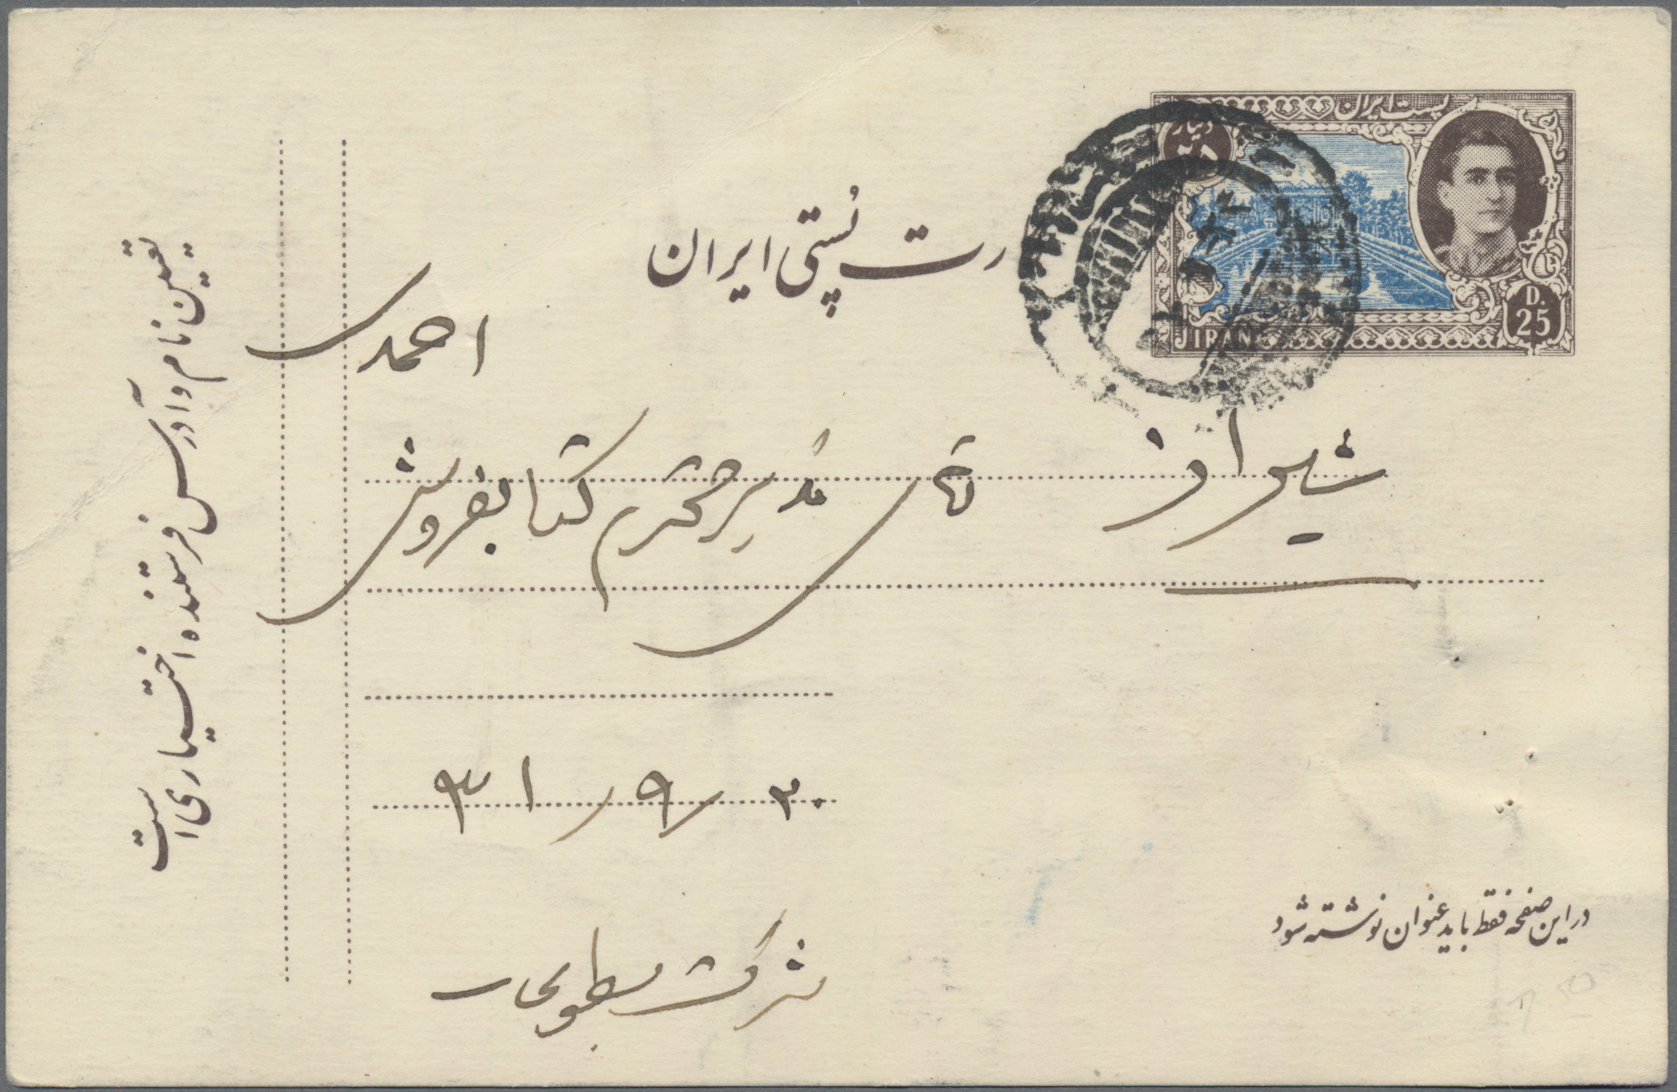 پست ایران
دینار
۲۵
D.
25
IRAN
رت پستی ایران
احمدی
شیراز آقای مدیر محترم کتابفروشی
۳۱/۹/۳۰
شرکت مطبوعات
در این صفحه فقط باید عنوان نوشته شود
تعیین نام و آدرس فرستنده اختیاری است